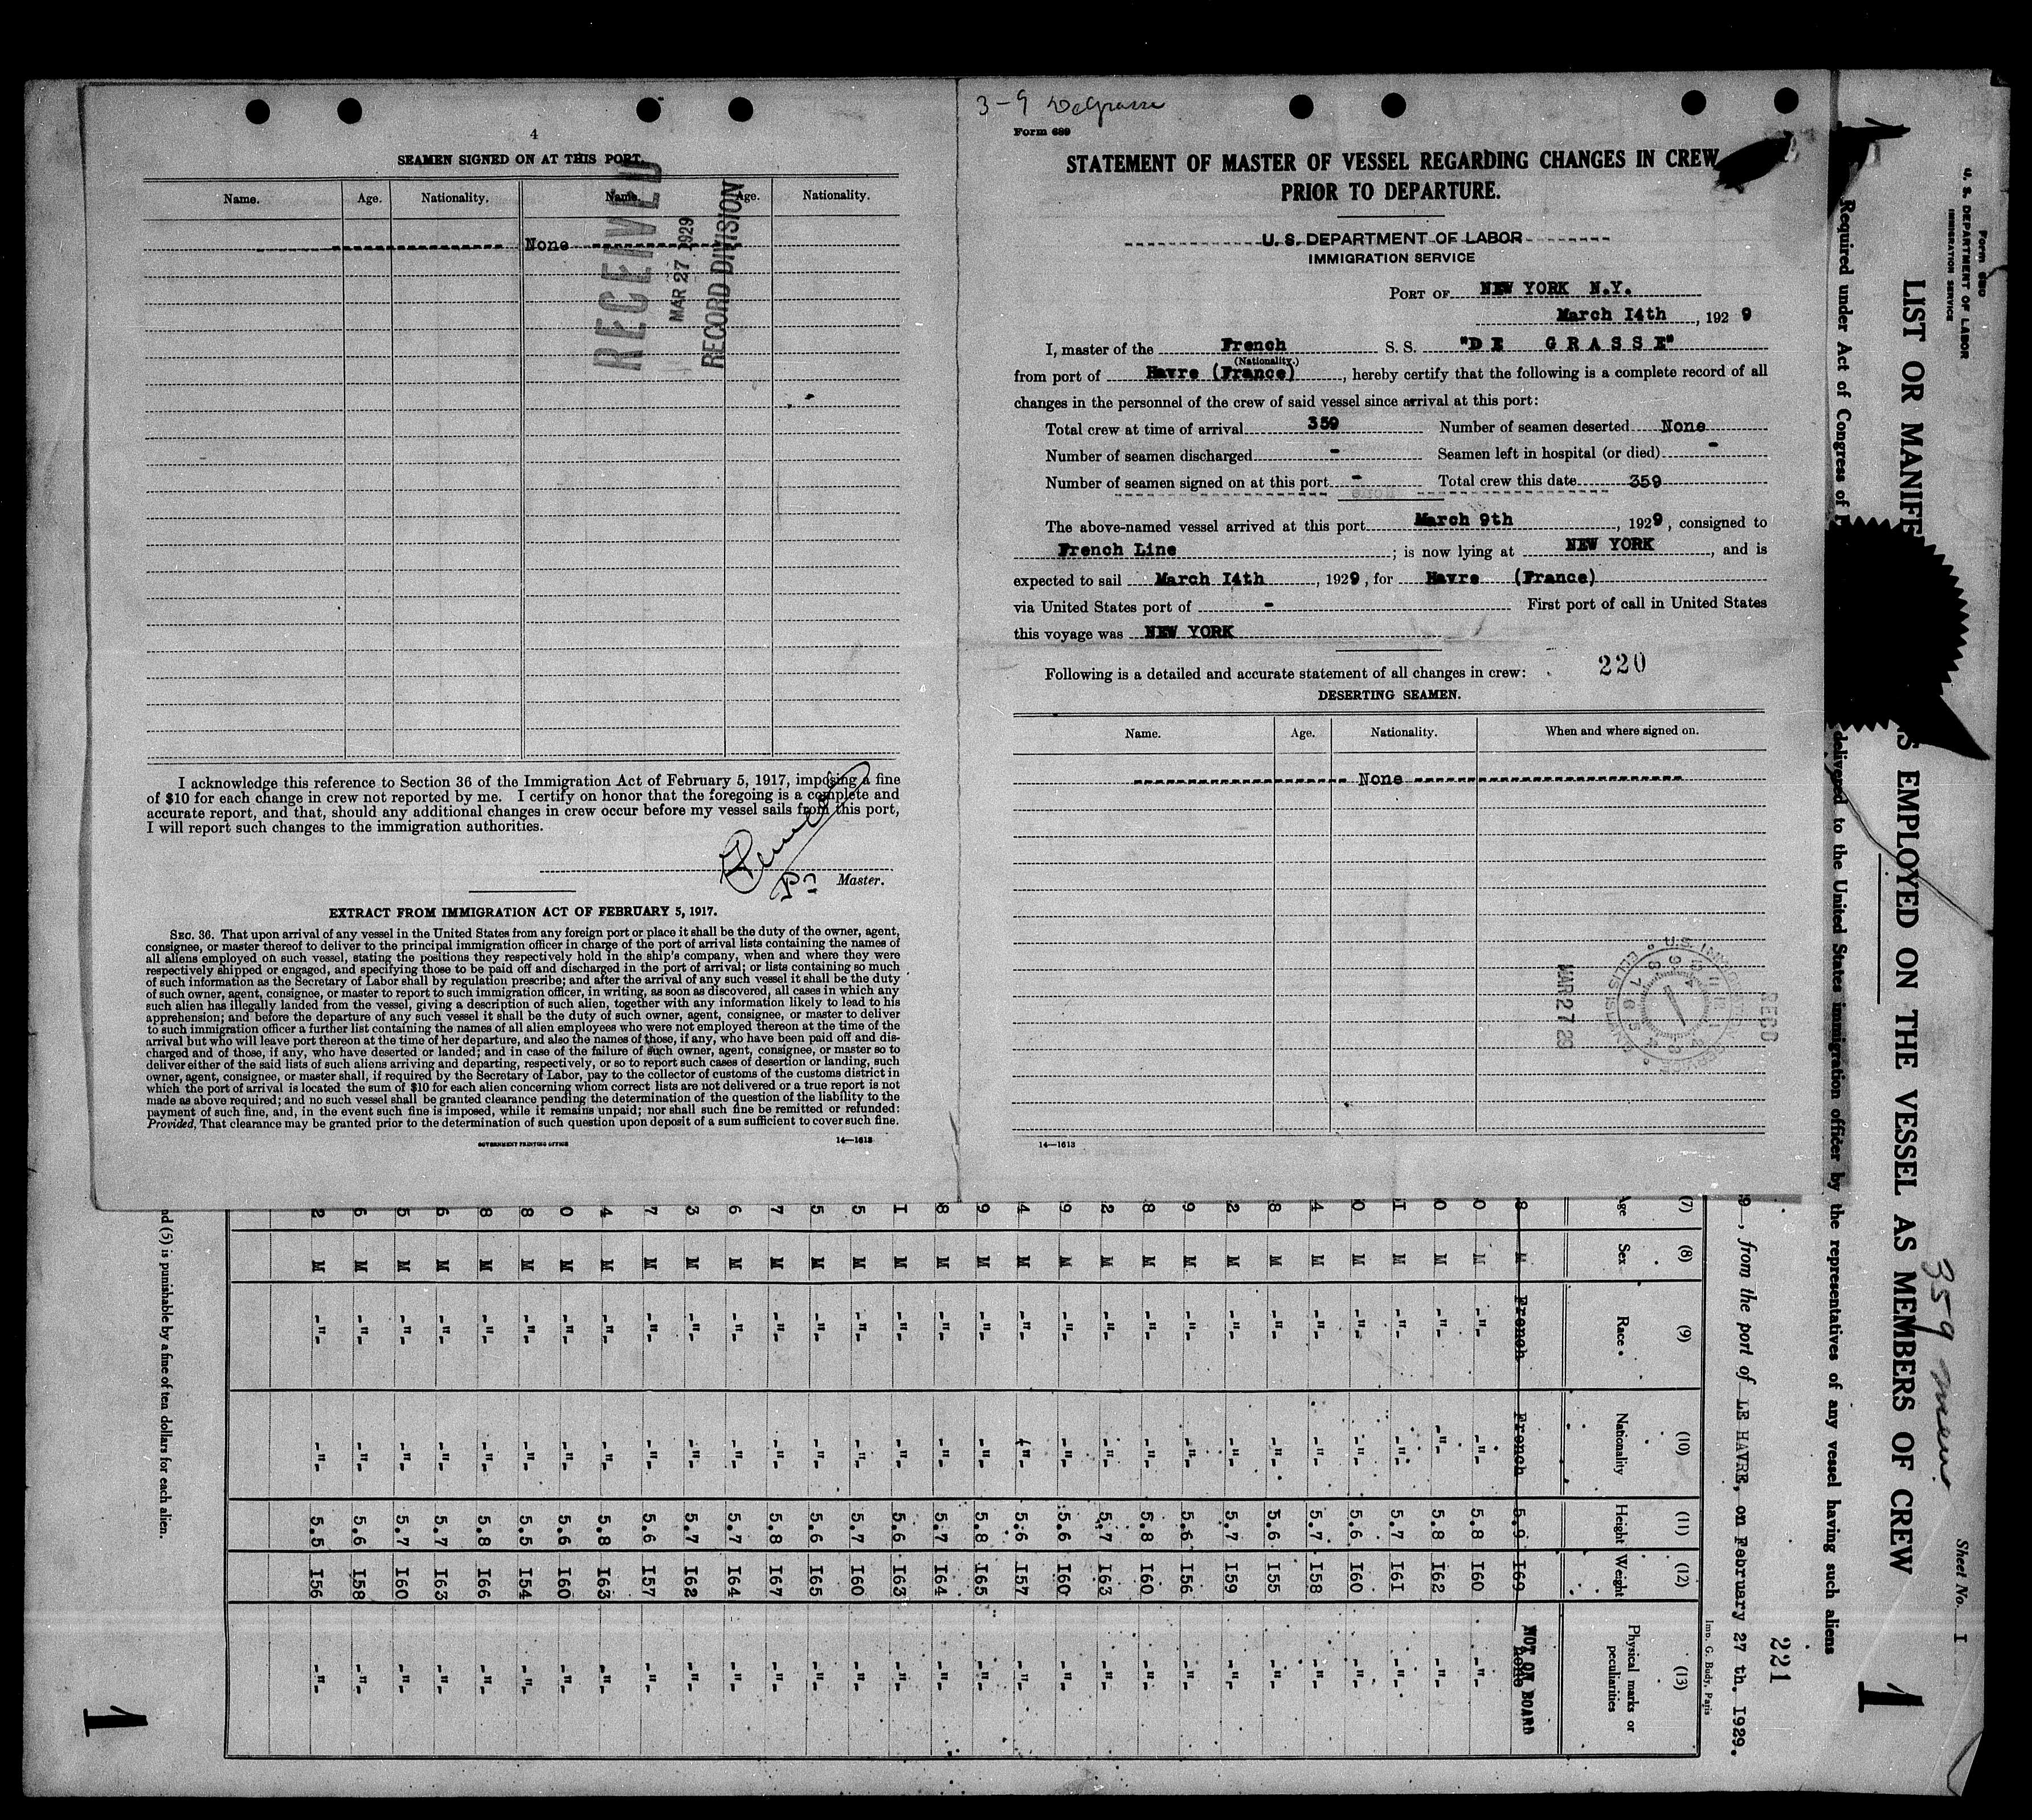 4
SEAMEN SIGNED ON AT THIS PORT.
Name. Age. Nationality. Name. Age. Nationality.
None
RECEIVED
MAR 27 1929
RECORD DIVISION
I acknowledge this reference to Section 36 of the Immigration Act of February 5, 1917, imposing a fine
of $10 for each change in crew not reported by me. I certify on honor that the foregoing is a complete and
accurate report, and that, should any additional changes in crew occur before my vessel sails from this port,
I will report such changes to the immigration authorities.
Master.
EXTRACT FROM IMMIGRATION ACT OF FEBRUARY 5, 1917.
SEC. 36. That upon arrival of any vessel in the United States from any foreign port or place it shall be the duty of the owner, agent,
consignee, or master thereof to deliver to the principal immigration officer in charge of the port of arrival lists containing the names of
all aliens employed on such vessel, stating the positions they respectively hold in the ship's company, when and where they were
respectively shipped or engaged, and specifying those to be paid off and discharged in the port of arrival; or lists containing so much
of such information as the Secretary of Labor shall by regulation prescribe; and after the arrival of any such vessel it shall be the duty
of such owner, agent, consignee, or master to report to such immigration officer, in writing, as soon as discovered, all cases in which any
such alien has illegally landed from the vessel, giving a description of such alien, together with any information likely to lead to his
apprehension; and before the departure of any such vessel it shall be the duty of such owner, agent, consignee, or master to deliver
to such immigration officer a further list containing the names of all alien employees who were not employed thereon at the time of the
arrival but who will leave port thereon at the time of her departure, and also the names of those, if any, who have been paid off and dis-
charged and of those, if any, who have deserted or landed; and in case of the failure of such owner, agent, consignee, or master so to
deliver either of the said lists of such aliens arriving and departing, respectively, or so to report such cases of desertion or landing, such
owner, agent, consignee, or master shall, if required by the Secretary of Labor, pay to the collector of customs of the customs district in
which the port of arrival is located the sum of $10 for each alien concerning whom correct lists are not delivered or a true report is not
made as above required; and no such vessel shall be granted clearance pending the determination of the question of the liability to the
payment of such fine, and, in the event such fine is imposed, while it remains unpaid; nor shall such fine be remitted or refunded:
Provided, That clearance may be granted prior to the determination of such question upon deposit of a sum sufficient to cover such fine.
GOVERNMENT PRINTING OFFICE 14—1613
3-9 DeGrasse
Form 689
STATEMENT OF MASTER OF VESSEL REGARDING CHANGES IN CREW
PRIOR TO DEPARTURE.
U. S. DEPARTMENT OF LABOR
IMMIGRATION SERVICE
PORT OF NEW YORK N.Y.
March I4th, 1929
I, master of the French S. S. "DE GRASSE"
(Nationality.)
from port of Havre (France), hereby certify that the following is a complete record of all
changes in the personnel of the crew of said vessel since arrival at this port:
Total crew at time of arrival 359 Number of seamen deserted None
Number of seamen discharged - Seamen left in hospital (or died) -
Number of seamen signed on at this port - Total crew this date 359
The above-named vessel arrived at this port March 9th, 1929, consigned to
French Line; is now lying at NEW YORK, and is
expected to sail March I4th, 1929, for Havre (France)
via United States port of - First port of call in United States
this voyage was NEW YORK
220
Following is a detailed and accurate statement of all changes in crew:
DESERTING SEAMEN.
Name. Age. Nationality. When and where signed on.
None
MAR 27 29
RECD
14—1613
Form 680
U. S. DEPARTMENT OF LABOR
IMMIGRATION SERVICE
Sheet No. I
359 men
LIST OR MANIFE
S EMPLOYED ON THE VESSEL AS MEMBERS OF CREW
1
1
Required under Act of Congress of F
delivered to the United States immigration officer by the representatives of any vessel having such aliens
221
9, from the port of LE HAVRE, on February 27 th. I929.
Imp. G. Budy, Paris
(7) (8) (9) (10) (11) (12) (13)
Age Sex Race Nationality Height Weight Physical marks or peculiarities
8 M French French 5.9 I69 NOT ON BOARD
0 M -"- -"- 5.8 I60 -"-
0 M -"- -"- 5.8 I62 -"-
I M -"- -"- 5.7 I6I -"-
0 M -"- -"- 5.6 I60 -"-
4 M -"- -"- 5.7 I58 -"-
8 M -"- -"- 5.6 I55 -"-
2 M -"- -"- 5.7 I59 -"-
9 M -"- -"- 5.6 I56 -"-
8 M -"- -"- 5.8 I60 -"-
2 M -"- -"- 5.7 I63 -"-
9 M -"- -"- 5.6 I60 -"-
4 M -"- -"- 5.6 I57 -"-
9 M -"- -"- 5.8 I65 -"-
8 M -"- -"- 5.7 I64 -"-
I M -"- -"- 5.6 I63 -"-
5 M -"- -"- 5.7 I60 -"-
5 M -"- -"- 5.6 I65 -"-
7 M -"- -"- 5.8 I67 -"-
6 M -"- -"- 5.7 I64 -"-
3 M -"- -"- 5.7 I62 -"-
7 M -"- -"- 5.6 I57 -"-
4 M -"- -"- 5.8 I63 -"-
0 M -"- -"- 5.6 I60 -"-
8 M -"- -"- 5.5 I54 -"-
8 M -"- -"- 5.8 I66 -"-
6 M -"- -"- 5.7 I63 -"-
5 M -"- -"- 5.7 I60 -"-
6 M -"- -"- 5.6 I58 -"-
2 M -"- -"- 5.5 I56 -"-
nd (5) is punishable by a fine of ten dollars for each alien.
1